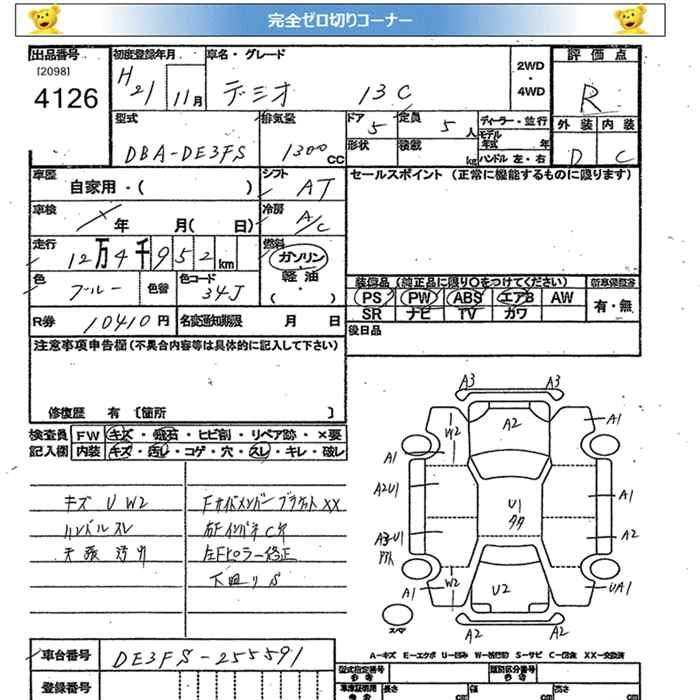 完全ゼロ切りコーナー
出品番号 初度登録年月 車名・グレード 2WD・4WD 評価点
[2098]
4126 H21 11月 デミオ 13C R
外装 内装
D C
型式 排気量 ドア 定員 ディーラー・並行
DBA-DE3FS 1300CC 5 5人 モデル年式 年
形状 積載 kg ハンドル 左・右
車歴 自家用・( ) シフト AT セールスポイント (正常に機能するものに限ります)
車検 年 月( 日) 冷房 A/C
走行 12万4千952km 燃料 ガソリン・軽油・( )
色 ブルー 色替 色コード 34J
装備品 (純正品に限り○をつけてください) 新車保証書
PS PW ABS エアB AW 有・無
SR ナビ TV カワ
R券 10410円 名変通知期限 月 日 後日品
注意事項申告欄 (不具合内容等は具体的に記入して下さい)
修復歴 有 [箇所 ]
検査員 FW キズ・飛石・ヒビ割・リペア跡・×要
記入欄 内装 キズ・汚れ・コゲ・穴・スレ・キレ・破レ
キズ U W2
ハンドルスレ
天張汚れ
FサイドメンバーブラケットXX
左Fピラー修正
下廻りS
A3 A3
A2
W2 A1
A1
A2U1 A1
U1
A3U1 A2
W2 U2
A1 UA1
A2 A2
スペア
A-キズ E-エクボ U-凹み W-板金跡 S-サビ C-腐食 XX-交換済
車台番号 DE3FS-255591
登録番号
型式指定番号 参考 類別区分番号 参考
車庫証明用 参考 長さ cm 幅 cm 高さ cm